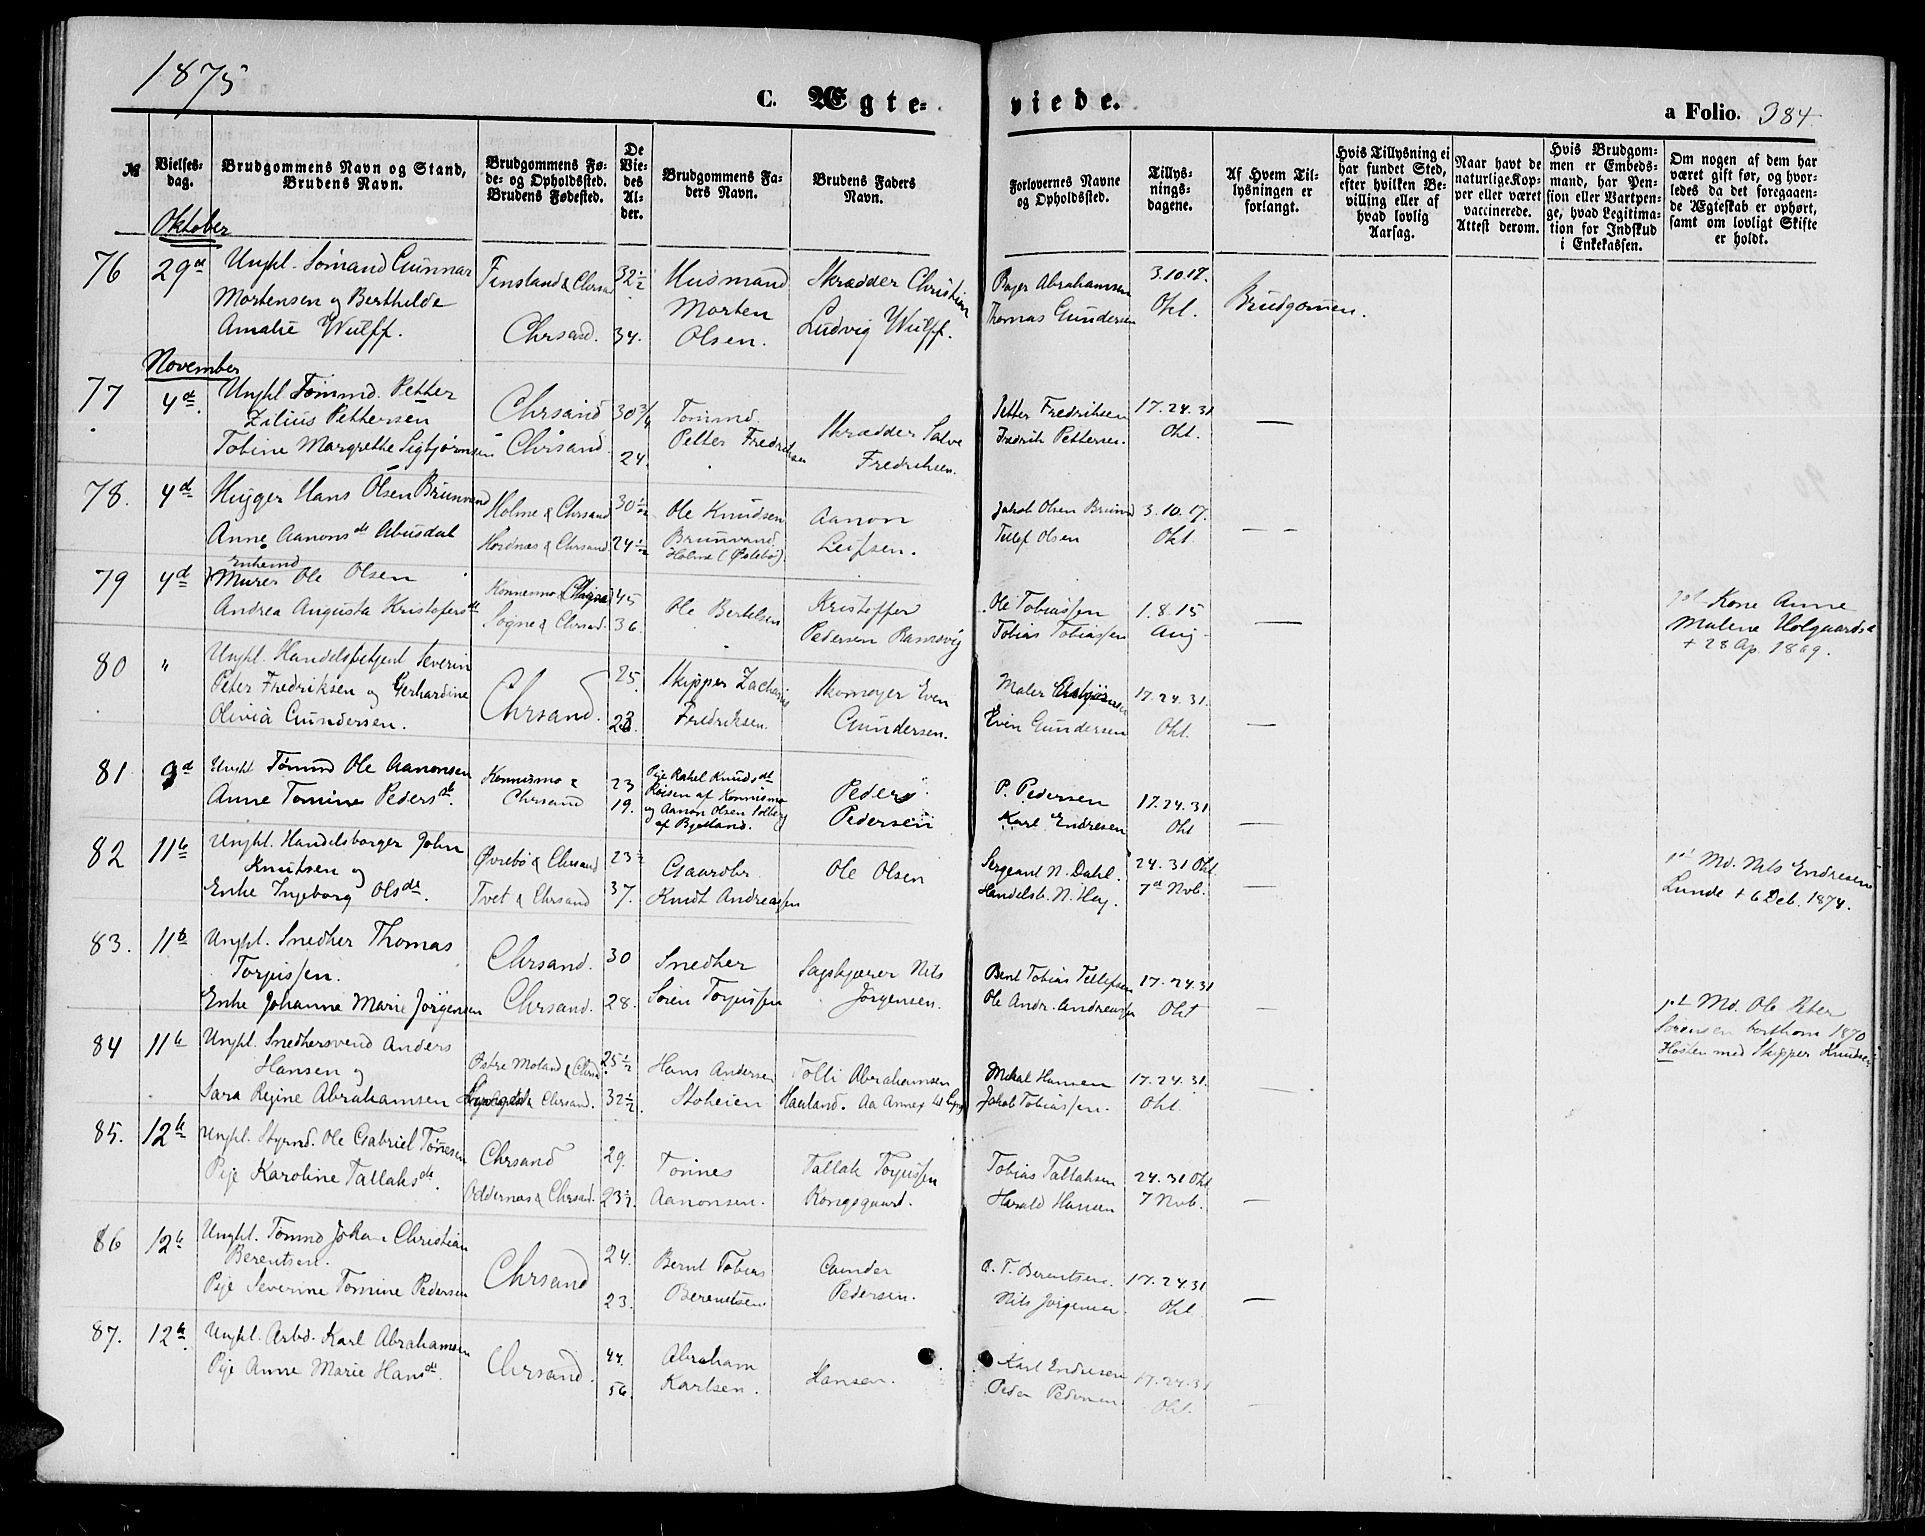 1875
C. Ægte- viede. a Folio. 384
№
Vielses-
dag.
Brudgommens Navn og Stand,
Brudens Navn.
Brudgommens Fø-
de- og Opholdssted.
Brudens Fødested.
De
Vie-
des
Al-
der.
Brudgommens Fa-
ders Navn.
Brudens Faders
Navn.
Forlovernes Navne
og Opholdssted.
Tillys-
nings-
dagene.
Af Hvem Til-
lysningen er
forlangt.
Hvis Tillysning ei
har fundet Sted,
efter hvilken Be-
villing eller af
hvad lovlig
Aarsag.
Naar havt de
naturlige Kop-
per eller været
vaccinerede.
Attest derom.
Hvis Brudgom-
men er Embeds-
mand, har Pen-
sion eller Vartpen-
ge, hvad Legitima-
tion for Indskud
i Enkekassen.
Om nogen af dem har
været gift før, og hvor-
ledes da det foregaaen-
de Ægteskab er ophørt,
samt om lovligt Skifte
er holdt.
Oktober
76 29d Ungkl. Sømand Gunnar
Mortensen og Berthilde
Amalie Wulff.
Finsland & Chrsand 32½
Chrsand. 34.
Husmand
Morten
Olsen.
Skrædder Christian
Ludvig Wulff.
Abrahamsen
Thomas Gundersen
3.10.17.
Okt.
Brudgomen.
November
77 4d. Ungkl Tømmd. Petter
Zilius Pettersen
Tobine Margrethe Sigbjørnsen
Chrsand 30¾
Chrsand. 24.
Tømmd
Petter Fredriksen
Skrædder Salve
Fredriksen.
Petter Fredriksen
Fredrik Pettersen.
17.24.31
Okt. —
78. 4d Hans Olsen Brunvand
Anne Aanonsdt Abusdal
Holme & Chrsand 30½
Hordnæs & Chrsand 24½
Ole Knudsen
Brunvand
Holme (Øslebø)
Aanon
Leifsen.
Jakob Olsen Brunvd
Tellef Olsen
3.10.17.
Okt. — —
79 4d Enkemd
Murer Ole Olsen
Andrea Augusta Kristofersdt
Konnesmo & 45
Søgne & Chrsand. 36.
Ole Bertelsen
Kristoffer
Pedersen Ramsvig
Ole Tobiassen
Tobias Tobiassen
1.8.15
Aug. —
Kone Anne
Malene Holgaardsd
+ 28 Ap. 1869.
80 " Ungkl. Handelsbetjent Severin
Peter Fredriksen og Gerhardine
Olivia Gundersen.
Chrsand. 25.
23.
Skipper Zacharias
Fredriksen.
Skomager Even
Gundersen.
Maler
Even Gundersen
17.24.31.
Okt. —
81 9d Ungkl Tømmd Ole Aanonsen
Anne Tomine Pedersdt.
Konnismo &
Chrsand
23
19.
Pige Rakel Knudsdt
Røisen af Konnismo
og Aanon Olsen Solberg
af Bjelland.
Peder
Pedersen
P. Pedersen
Karl Endresen
17.24.31
Okt —
82 11te Ungkl. Handelsborger John
Knutsen og
Enke Ingeborg Olsdt.
Øvrebø & Chrsand 23½
Tvet & Chrsand 37.
Gaardbr.
Knut Andreassen
Ole Olsen
Sergeant N. Dahl.
Handelsb. N. Hey.
24.31 Okt
7d Novb. —
Md. Nils Endresen
Lunde + 6 Deb. 1874.
83. 11te Ungkl. Snedker Thomas
Torjussen.
Enke Johanne Marie Jörgensen
Chrsand. 30
Chrsand. 28.
Snedker
Sören Torjussen
Sagskjærer Nils
Jörgensen.
Bent Tobias Tellefsen
Ole Andr. Andreassen
17.24.31
Okt —
Md. Ole Peter
Sörensen bortkom 1870
Høsten med Skipper Knudsen
84 11te Ungkl. Snedkersvend Anders
Hansen og
Sara Regine Abrahamsen
Østre Moland & Chrsd 25½
& Chrsand. 32½
Hans Andersen
Stoheien
Tolli Abrahamsen
Haaland. Aa Annex til
Mikal Hansen
Jakob Tobiassen.
17.24.31.
Okt. —
85. 12te Ungkl. Styrmd. Ole Gabriel Tønnesen
Pige Karoline Tallaksdt.
Chrsand 29.
Oddernæs & Chrsand. 23½
Tønnes
Aanonsen.
Tallak Torjussen
Kongsgaard.
Tobias Tallaksen
Harald Hansen
24.31 Okt
7 Novb. —
86 12te Ungkl. Tømmd Johan Christian
Berentsen.
Pige Severine Tomine Pedersen
Chrsand 24.
23.
Bernt Tobias
Berentsen
Gunder
Pedersen.
B. T. Berentsen.
Nils Jørgensen.
17.24.31
Okt. —
87. 12te Ungkl. Arbd. Karl Abrahamsen
Pige Anne Marie Hansdt.
Chrsand. 44.
56.
Abraham
Karlsen.
Hansen.
Karl Endresen
Peder Pedersen
17.24.31
Okt. —